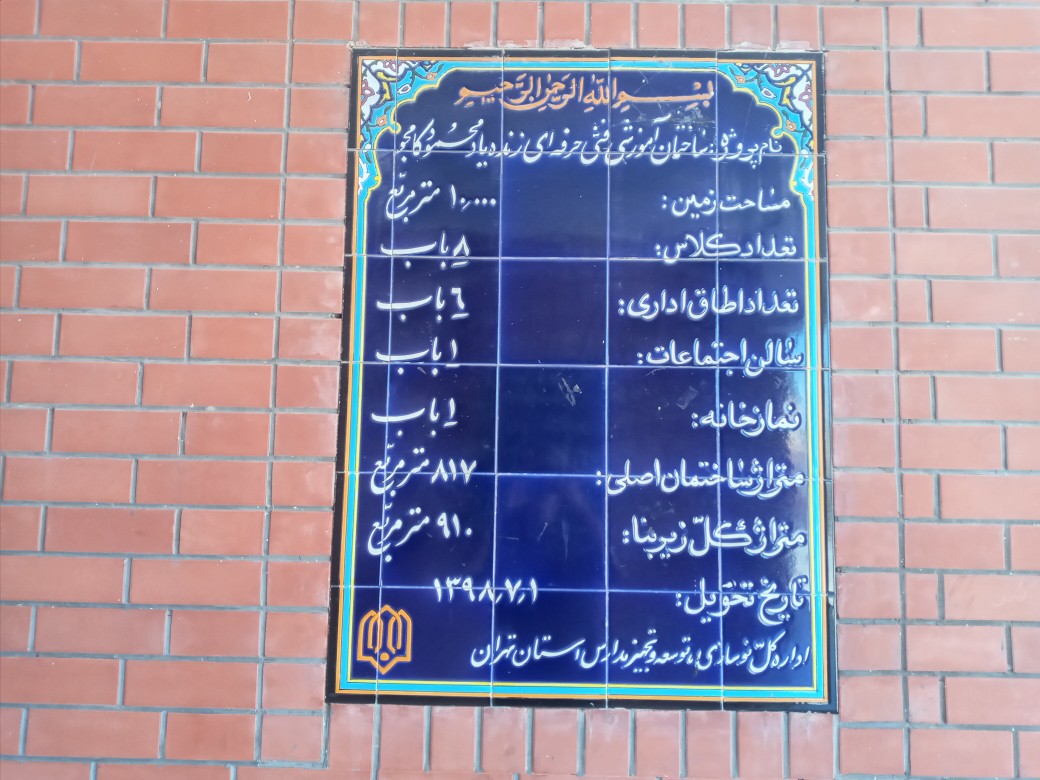 بسم الله الرحمن الرحیم
نام پروژه: ساختمان آموزشی فنی حرفه ای زنده یاد محمود کامجو
مساحت زمین: ۱۰,۰۰۰ متر مربّع
تعداد کلاس: ۸ باب
تعداد اطاق اداری: ٦ باب
سالن اجتماعات: ۱ باب
نمازخانه: ۱ باب
متراژ ساختمان اصلی: ۸۱۷ متر مربّع
متراژ کلّ زیربنا: ۹۱۰ متر مربّع
تاریخ تحویل: ۱۳۹۸٫۷٫۱
اداره کلّ نوسازی، توسعه و تجهیز مدارس استان تهران